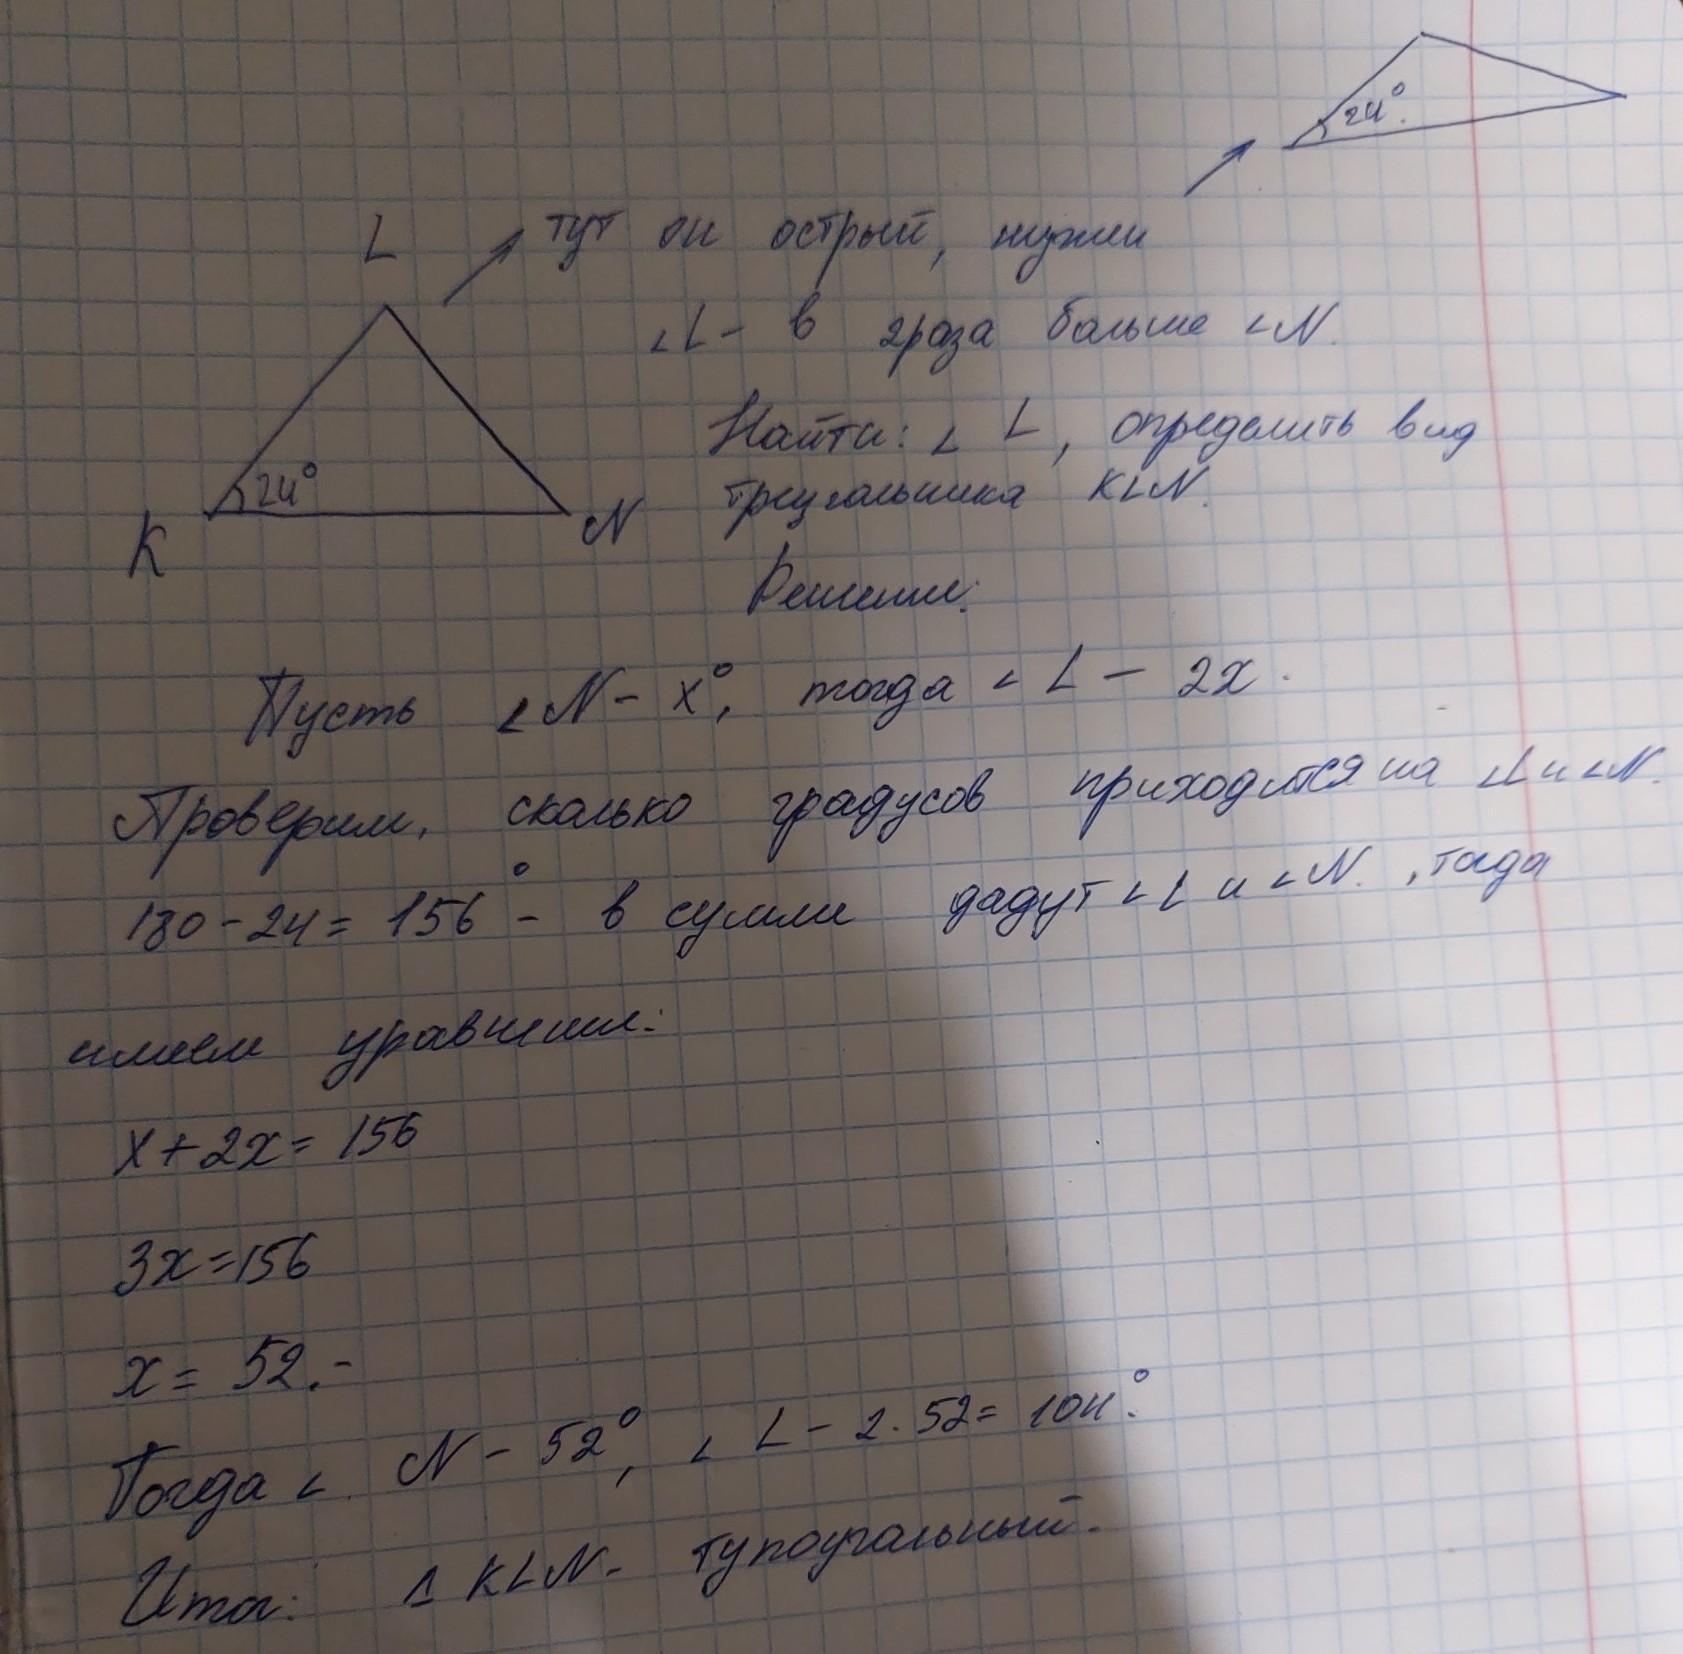 24°.
L тут он острый, нужен
∠L - в 2 раза больше ∠N.
Найти: ∠ L, определить вид
24°
K N треугольника KLN.
Решение.
Пусть ∠N - x°, тогда ∠ L - 2x.
Проверим, сколько градусов приходится на ∠L и ∠N.
180 - 24 = 156° - в сумме дадут ∠L и ∠N. , тогда
имеем уравнение:
x + 2x = 156
3x = 156
x = 52. -
Тогда ∠ N - 52°, ∠ L - 2 · 52 = 104°.
Итог: △ KLN - тупоугольный.